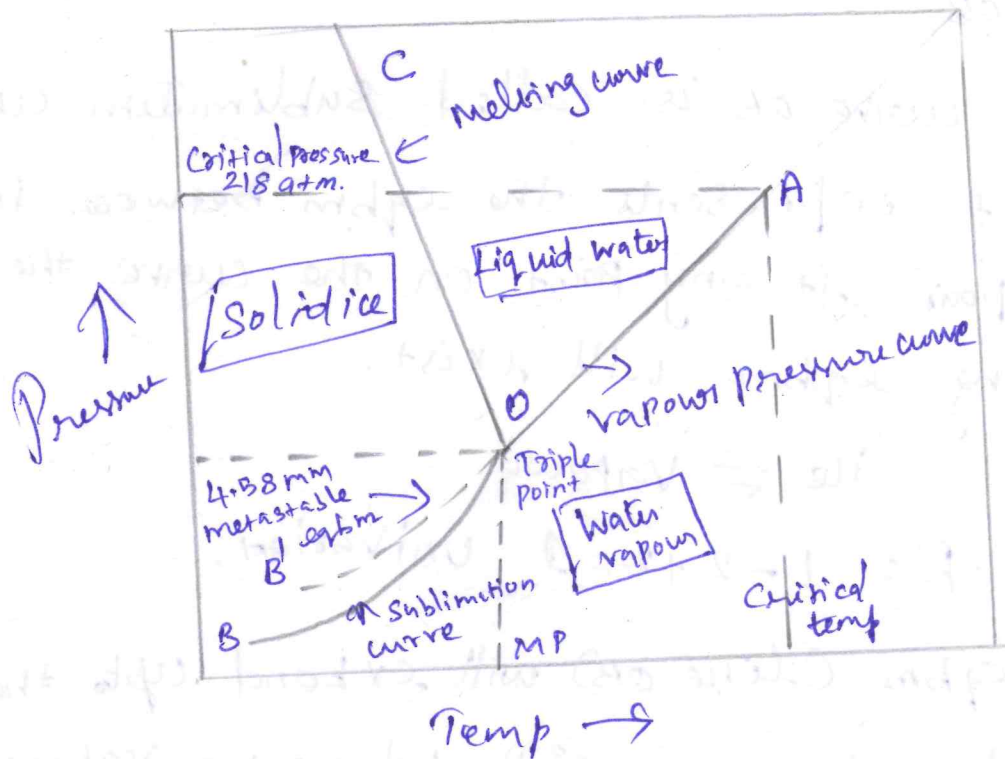 C
Melting curve
Critical pressure
218 atm.
A
Liquid water
Solid ice
Pressure
O
Vapour pressure curve
Triple
point
4.58 mm
metastable
eqbm
B'
Water
vapour
B
Sublimation
curve
MP
Critical
temp
Temp